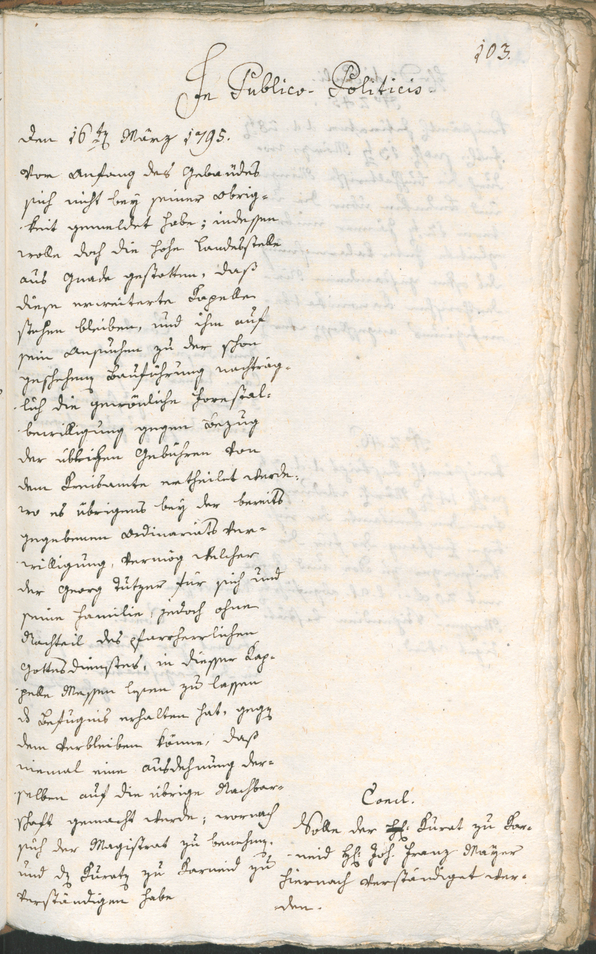 103.
In Publico-Politicis
Den 16ten März 1795.
Vom Anfang des Gebäudes
sich nicht bey seiner Obrig-
keit gemeldet habe; indessen
wolle doch die hohe Landesstelle
aus Gnade gestatten, daß
diese erweiterte Kapelle
stehen bleiben, und ihm auf
sein Ansuchen zu der schon
geschehenen Bauführung nachträg-
lich die gewönliche
bewilligung gegen Bezug
der üblichen Gebühren von
dem Kreisamte ertheilet werde;
wo es übrigens bey der bereits
gegebenen Ordinariats Ver-
willigung, vermög welcher
der Georg Tutzer für sich und
seine Familie, jedoch ohne
Nachteil des pfarrherrlichen
Gottesdienstes, in dieser Kap-
pelle Messen lesen zu lassen
die Befugnis erhalten hat, gegen
dem verbleiben könne, daß
niemal eine Ausdehnung der-
selben auf die übrige Nachbar-
schaft gemacht werde; wornach
sich der Magistrat zu benehmen,
und den Kuraten zu Karneid zu
verständigen habe
Concl.
Solle der H: Kurat zu Kar-
neid H: Joh. Franz Mayer
hiernach verständiget wer-
den.